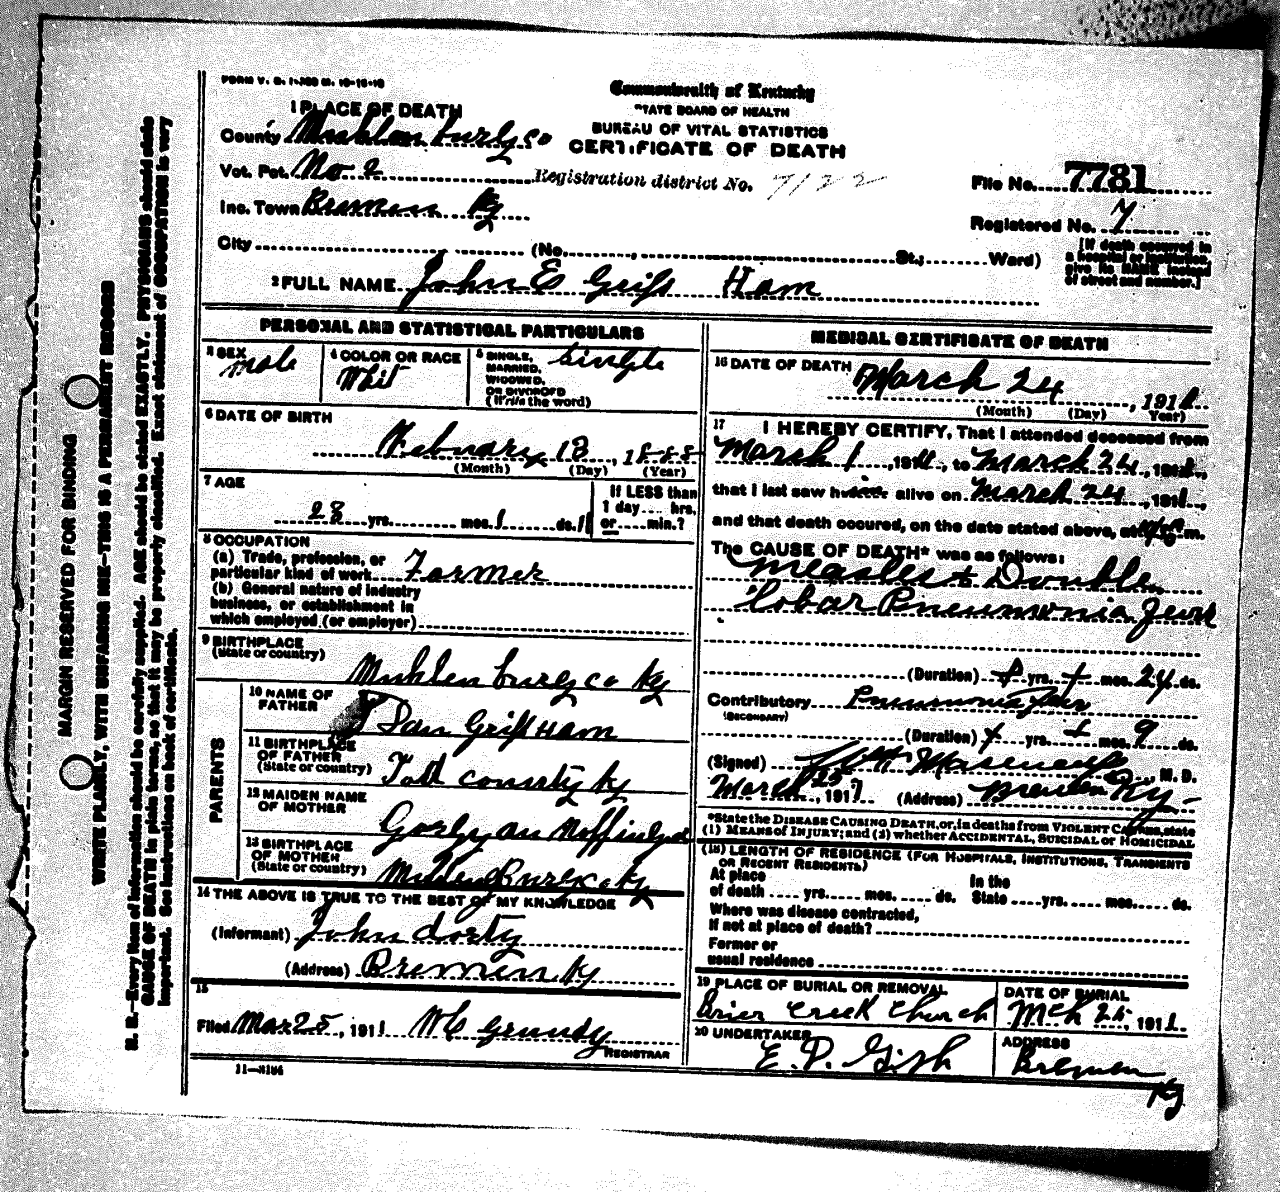 FORM V. S. 1-
Commonwealth of Kentucky
STATE BOARD OF HEALTH
BUREAU OF VITAL STATISTICS
CERTIFICATE OF DEATH
1 PLACE OF DEATH
County Muhlenburg co
Vot. Pct. No. 2
Registration district No. 7122
Inc. Town Bremen Ky
File No. 7781
Registered No. 7
City (No. , St.; Ward)
[If death occurred in
a hospital or institution,
give its NAME instead
of street and number.]
2 FULL NAME John E Griff Ham
PERSONAL AND STATISTICAL PARTICULARS
3 SEX male
4 COLOR OR RACE Whit
5 SINGLE, MARRIED, WIDOWED, OR DIVORCED (Write the word) Single
6 DATE OF BIRTH
February 13, 1888
(Month) (Day) (Year)
7 AGE
23 yrs. mos. 1 ds. 11
If LESS than
1 day.... hrs.
or.... min.?
8 OCCUPATION
(a) Trade, profession, or
particular kind of work Farmer
(b) General nature of industry
business, or establishment in
which employed (or employer)
9 BIRTHPLACE
(State or country)
Muhlenburg co Ky
PARENTS
10 NAME OF
FATHER
Dan Griff Ham
11 BIRTHPLACE
OF FATHER
(State or country) Todd county Ky
12 MAIDEN NAME
OF MOTHER
13 BIRTHPLACE
OF MOTHER
(State or country)
14 THE ABOVE IS TRUE TO THE BEST OF MY KNOWLEDGE
(Informant) John dorty
(Address) Bremen Ky
15
Filed Mar 25, 1911 W C Grundy
REGISTRAR
11-3184
MEDICAL CERTIFICATE OF DEATH
16 DATE OF DEATH March 24, 1911
(Month) (Day) Year)
17 I HEREBY CERTIFY, That I attended deceased from
March 1, 1911, to March 24, 1911,
that I last saw h alive on March 24, 1911,
and that death occured, on the date stated above, at m.
The CAUSE OF DEATH* was as follows:
Measles + Double
Lobar Pneumonia
(Duration) yrs. mos. 24 ds.
Contributory Pneumonia
(SECONDARY)
(Duration) yrs. mos. 9 ds.
(Signed) , M. D.
March 25, 191 (Address) Bremen Ky-
*State the DISEASE CAUSING DEATH, or, in deaths from VIOLENT CAUSES, state
(1) MEANS of INJURY; and (2) whether ACCIDENTAL, SUICIDAL or HOMICIDAL
(18) LENGTH OF RESIDENCE (FOR HOSPITALS, INSTITUTIONS, TRANSIENTS
OR RECENT RESIDENTS.)
At place In the
of death .... yrs. .... mos. .... ds. State ....yrs. .... mos..... ds.
Where was disease contracted,
If not at place of death?
Former or
usual residence
19 PLACE OF BURIAL OR REMOVAL DATE OF BURIAL
Brier Creek Church Mch 25, 1911
20 UNDERTAKER ADDRESS
E. P. Gish Bremen
Ky
MARGIN RESERVED FOR BINDING
WRITE PLAINLY, WITH UNFADING INK—THIS IS A PERMANENT RECORD
N. B.—Every item of information should be carefully supplied. AGE should be stated EXACTLY. PHYSICIANS should state
CAUSE OF DEATH in plain terms, so that it may be properly classified. Exact statement of OCCUPATION is very
important. See instructions on back of certificate.